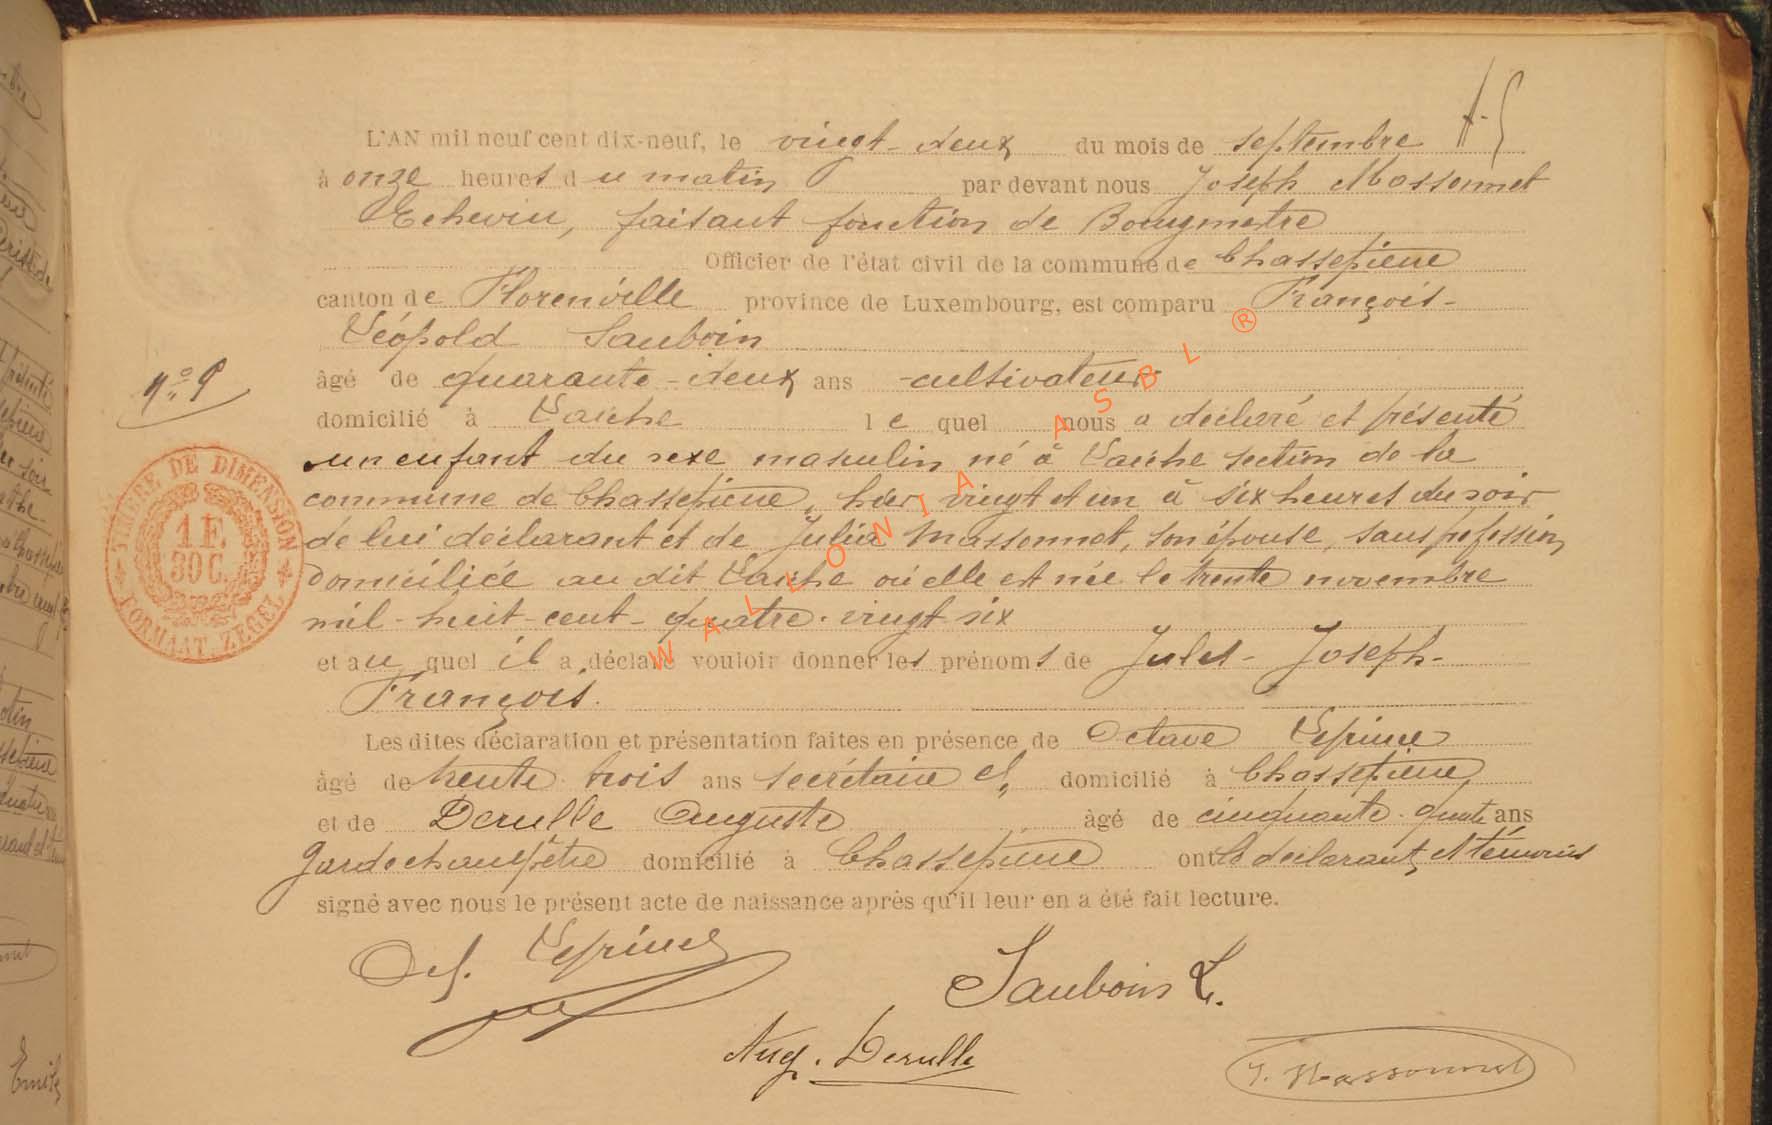 L'AN mil neuf cent dix-neuf, le vingt-deux du mois de septembre
à onze heures du matin par devant nous Joseph Massonnet
Echevin, faisant fonction de Bourgmestre
Officier de l'état civil de la commune de Chassepierre
canton de Florenville province de Luxembourg, est comparu François-
Léopold Sauboin
âgé de quarante-deux ans cultivateur
domicilié à Laiche lequel nous a déclaré et présenté
un enfant du sexe masculin né à Laiche section de la
commune de Chassepierre, hier vingt et un à six heures du soir
de lui déclarant et de Julia Massonnet, son épouse, sans profession,
domiciliée au dit Laiche où elle est née le trente novembre
mil-huit-cent-quatre-vingt six
et auquel il a déclaré vouloir donner les prénoms de Jules-Joseph-
François.
Les dites déclaration et présentation faites en présence de Octave Lepine
âgé de trente trois ans secrétaire cl, domicilié à Chassepierre
et de Derulle Auguste âgé de cinquante-quatre ans
garde champêtre domicilié à Chassepierre ont le déclarant et témoins
signé avec nous le présent acte de naissance après qu'il leur en a été fait lecture.
Lepine
Sauboin L.
Aug. Derulle
J. Massonnet
N° 9
TIMBRE DE DIMENSION
1 F.
30 C.
FORMAAT ZEGEL
WALLONIA ASBL ®